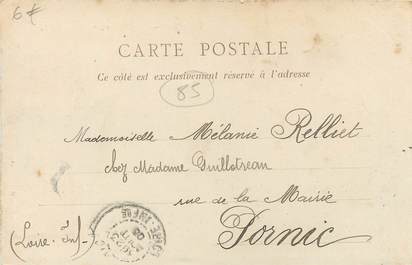 6€
CARTE POSTALE
Ce côté est exclusivement réservé à l'adresse
85
Mademoiselle Mélanie Relliet
chez Madame Guillotreau
rue de la Mairie
(Loire-Inf) Pornic